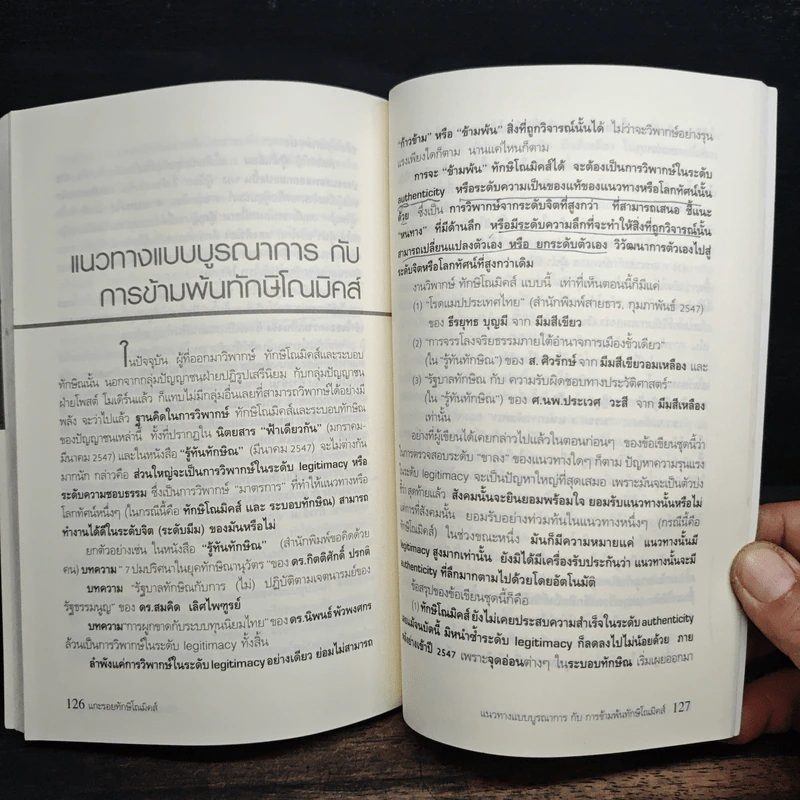 แนวทางแบบบูรณาการ กับ
การข้ามพ้นทักษิโณมิคส์
ในปัจจุบัน ผู้ที่ออกมาวิพากษ์ ทักษิโณมิคส์และระบอบ
ทักษิณนั้น นอกจากกลุ่มปัญญาชนฝ่ายปฏิรูปเสรีนิยม กับกลุ่มปัญญาชน
ฝ่ายโพสต์ โมเดิร์นแล้ว ก็แทบไม่มีกลุ่มอื่นเลยที่สามารถวิพากษ์ได้อย่างมี
พลัง จะว่าไปแล้ว ฐานคิดในการวิพากษ์ ทักษิโณมิคส์และระบอบทักษิณ
ของปัญญาชนเหล่านี้ ทั้งที่ปรากฏใน นิตยสาร “ฟ้าเดียวกัน” (มกราคม-
มีนาคม 2547) และในหนังสือ “รู้ทันทักษิณ” (มีนาคม 2547) จะไม่ต่างกัน
มากนัก กล่าวคือ ส่วนใหญ่จะเป็นการวิพากษ์ในระดับ legitimacy หรือ
ระดับความชอบธรรม ซึ่งเป็นการวิพากษ์ “มาตรการ” ที่ทำให้แนวทางหรือ
โลกทัศน์หนึ่งๆ (ในกรณีนี้คือ ทักษิโณมิคส์ และ ระบอบทักษิณ) สามารถ
ทำงานได้ดีในระดับจิต (ระดับมีม) ของมันหรือไม่
ยกตัวอย่างเช่น ในหนังสือ “รู้ทันทักษิณ” (สำนักพิมพ์ขอคิดด้วย
คน) บทความ “7 ปมปริศนาในยุคทักษิณานุวัตร” ของ ดร.กิตติศักดิ์ ปรกติ
บทความ “รัฐบาลทักษิณกับการ (ไม่) ปฏิบัติตามเจตนารมย์ของ
รัฐธรรมนูญ” ของ ดร.สมคิด เลิศไพฑูรย์
บทความ“การผูกขาดกับระบบทุนนิยมไทย” ของ ดร.นิพนธ์ พัวพงศกร
ล้วนเป็นการวิพากษ์ในระดับ legitimacy ทั้งสิ้น
ลำพังแค่การวิพากษ์ในระดับ legitimacy อย่างเดียว ย่อมไม่สามารถ
126 แกะรอยทักษิโณมิคส์
“ก้าวข้าม” หรือ “ข้ามพ้น” สิ่งที่ถูกวิจารณ์นั้นได้ ไม่ว่าจะวิพากษ์อย่างรุน
แรงเพียงใดก็ตาม นานแค่ไหนก็ตาม
การจะ “ข้ามพ้น” ทักษิโณมิคส์ได้ จะต้องเป็นการวิพากษ์ในระดับ
authenticity หรือระดับความเป็นของแท้ของแนวทางหรือโลกทัศน์นั้น
ด้วย ซึ่งเป็น การวิพากษ์จากระดับจิตที่สูงกว่า ที่สามารถเสนอ ชี้แนะ
“หนทาง” ที่มีด้านลึก หรือมีระดับความลึกที่จะทำให้สิ่งที่ถูกวิจารณ์นั้น
สามารถเปลี่ยนแปลงตัวเอง หรือ ยกระดับตัวเอง วิวัฒนาการตัวเองไปสู่
ระดับจิตหรือโลกทัศน์ที่สูงกว่าเดิม
งานวิพากษ์ ทักษิโณมิคส์ แบบนี้ เท่าที่เห็นตอนนี้ก็มีแค่
(1) “โรดแมปประเทศไทย” (สำนักพิมพ์สายธาร, กุมภาพันธ์ 2547)
ของ ธีรยุทธ บุญมี จาก มีมสีเขียว
(2) “การจรรโลงจริยธรรมภายใต้อำนาจการเมืองขั้วเดียว”
(ใน “รู้ทันทักษิณ”) ของ ส. ศิวรักษ์ จาก มีมสีเขียวอมเหลือง และ
(3) “รัฐบาลทักษิณ กับ ความรับผิดชอบทางประวัติศาสตร์”
(ใน “รู้ทันทักษิณ”) ของ ศ.นพ.ประเวศ วะสี จาก มีมสีเหลือง
เท่านั้น
อย่างที่ผู้เขียนได้เคยกล่าวไปแล้วในตอนก่อนๆ ของข้อเขียนชุดนี้ว่า
ในการตรวจสอบระดับ “ขาลง” ของแนวทางใดๆ ก็ตาม ปัญหาความรุนแรง
ในระดับ legitimacy จะเป็นปัญหาใหญ่ที่สุดเสมอ เพราะมันจะเป็นตัวบ่ง
ชี้ว่า สุดท้ายแล้ว สังคมนั้นจะยินยอมพร้อมใจ ยอมรับแนวทางนั้นหรือไม่
แต่การที่สังคมนั้น ยอมรับอย่างท่วมท้นในแนวทางหนึ่งๆ (กรณีนี้คือ
ทักษิโณมิคส์) ในช่วงขณะหนึ่ง มันก็มีความหมายแค่ แนวทางนั้นมี
legitimacy สูงมากเท่านั้น ยังมิได้มีเครื่องรับประกันว่า แนวทางนั้นจะมี
authenticity ที่ลึกมากตามไปด้วยโดยอัตโนมัติ
ข้อสรุปของข้อเขียนชุดนี้ก็คือ
(1) ทักษิโณมิคส์ยังไม่เคยประสบความสำเร็จในระดับ authenticity
เลยแม้จนบัดนี้ มิหนำซ้ำระดับ legitimacy ก็ลดลงไปไม่น้อยด้วย ภาย
หลังย่างเข้าปี 2547 เพราะจุดอ่อนต่างๆ ในระบอบทักษิณ เริ่มเผยออกมา
แนวทางแบบบูรณาการ กับ การข้ามพ้นทักษิโณมิคส์ 127